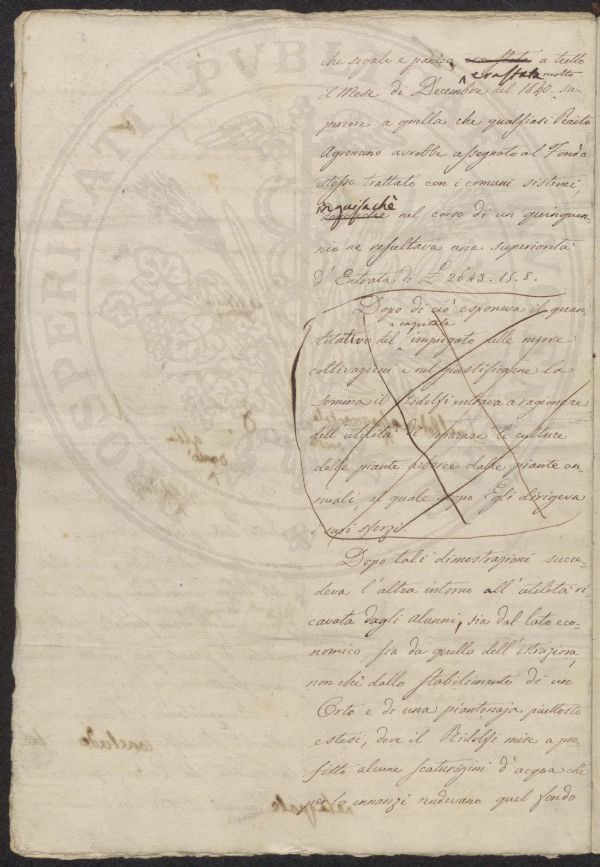 che segale e panico, era stata a tutto
era stata molto
il Mese di Decembre del 1840. su-
periore a quella che qualsiasi Perito
Agronomo avrebbe assegnato al Fondo
stesso trattato con i comuni sistemi,
in guisachè
nel corso di un quinquen-
nio ne resultava una superiorità
d'Entrata di £ 2643.15.8.
Dopo di ciò esponeva il quan-
capitale
titativo del impiegato nelle nuove
coltivazioni e nel giustificarne la
somma il Ridolfi entrava a ragionare
dell'utilità di separare le culture
delle piante arboree dalle piante an-
nuali al quale scopo Egli dirigeva
i suoi sforzi.
Dopo tali dimostrazioni succe-
deva l'altra intorno all'utilità ri-
cavata dagli alunni, sia dal lato eco-
nomico, sia da quello dell'istruzione,
non chè dallo stabilimento di un
Orto e di una piantonaja piuttosto
estesi, dove il Ridolfi mise a pro-
fitto alcune scaturigini d'acqua che
per lo innanzi rendevano quel fondo